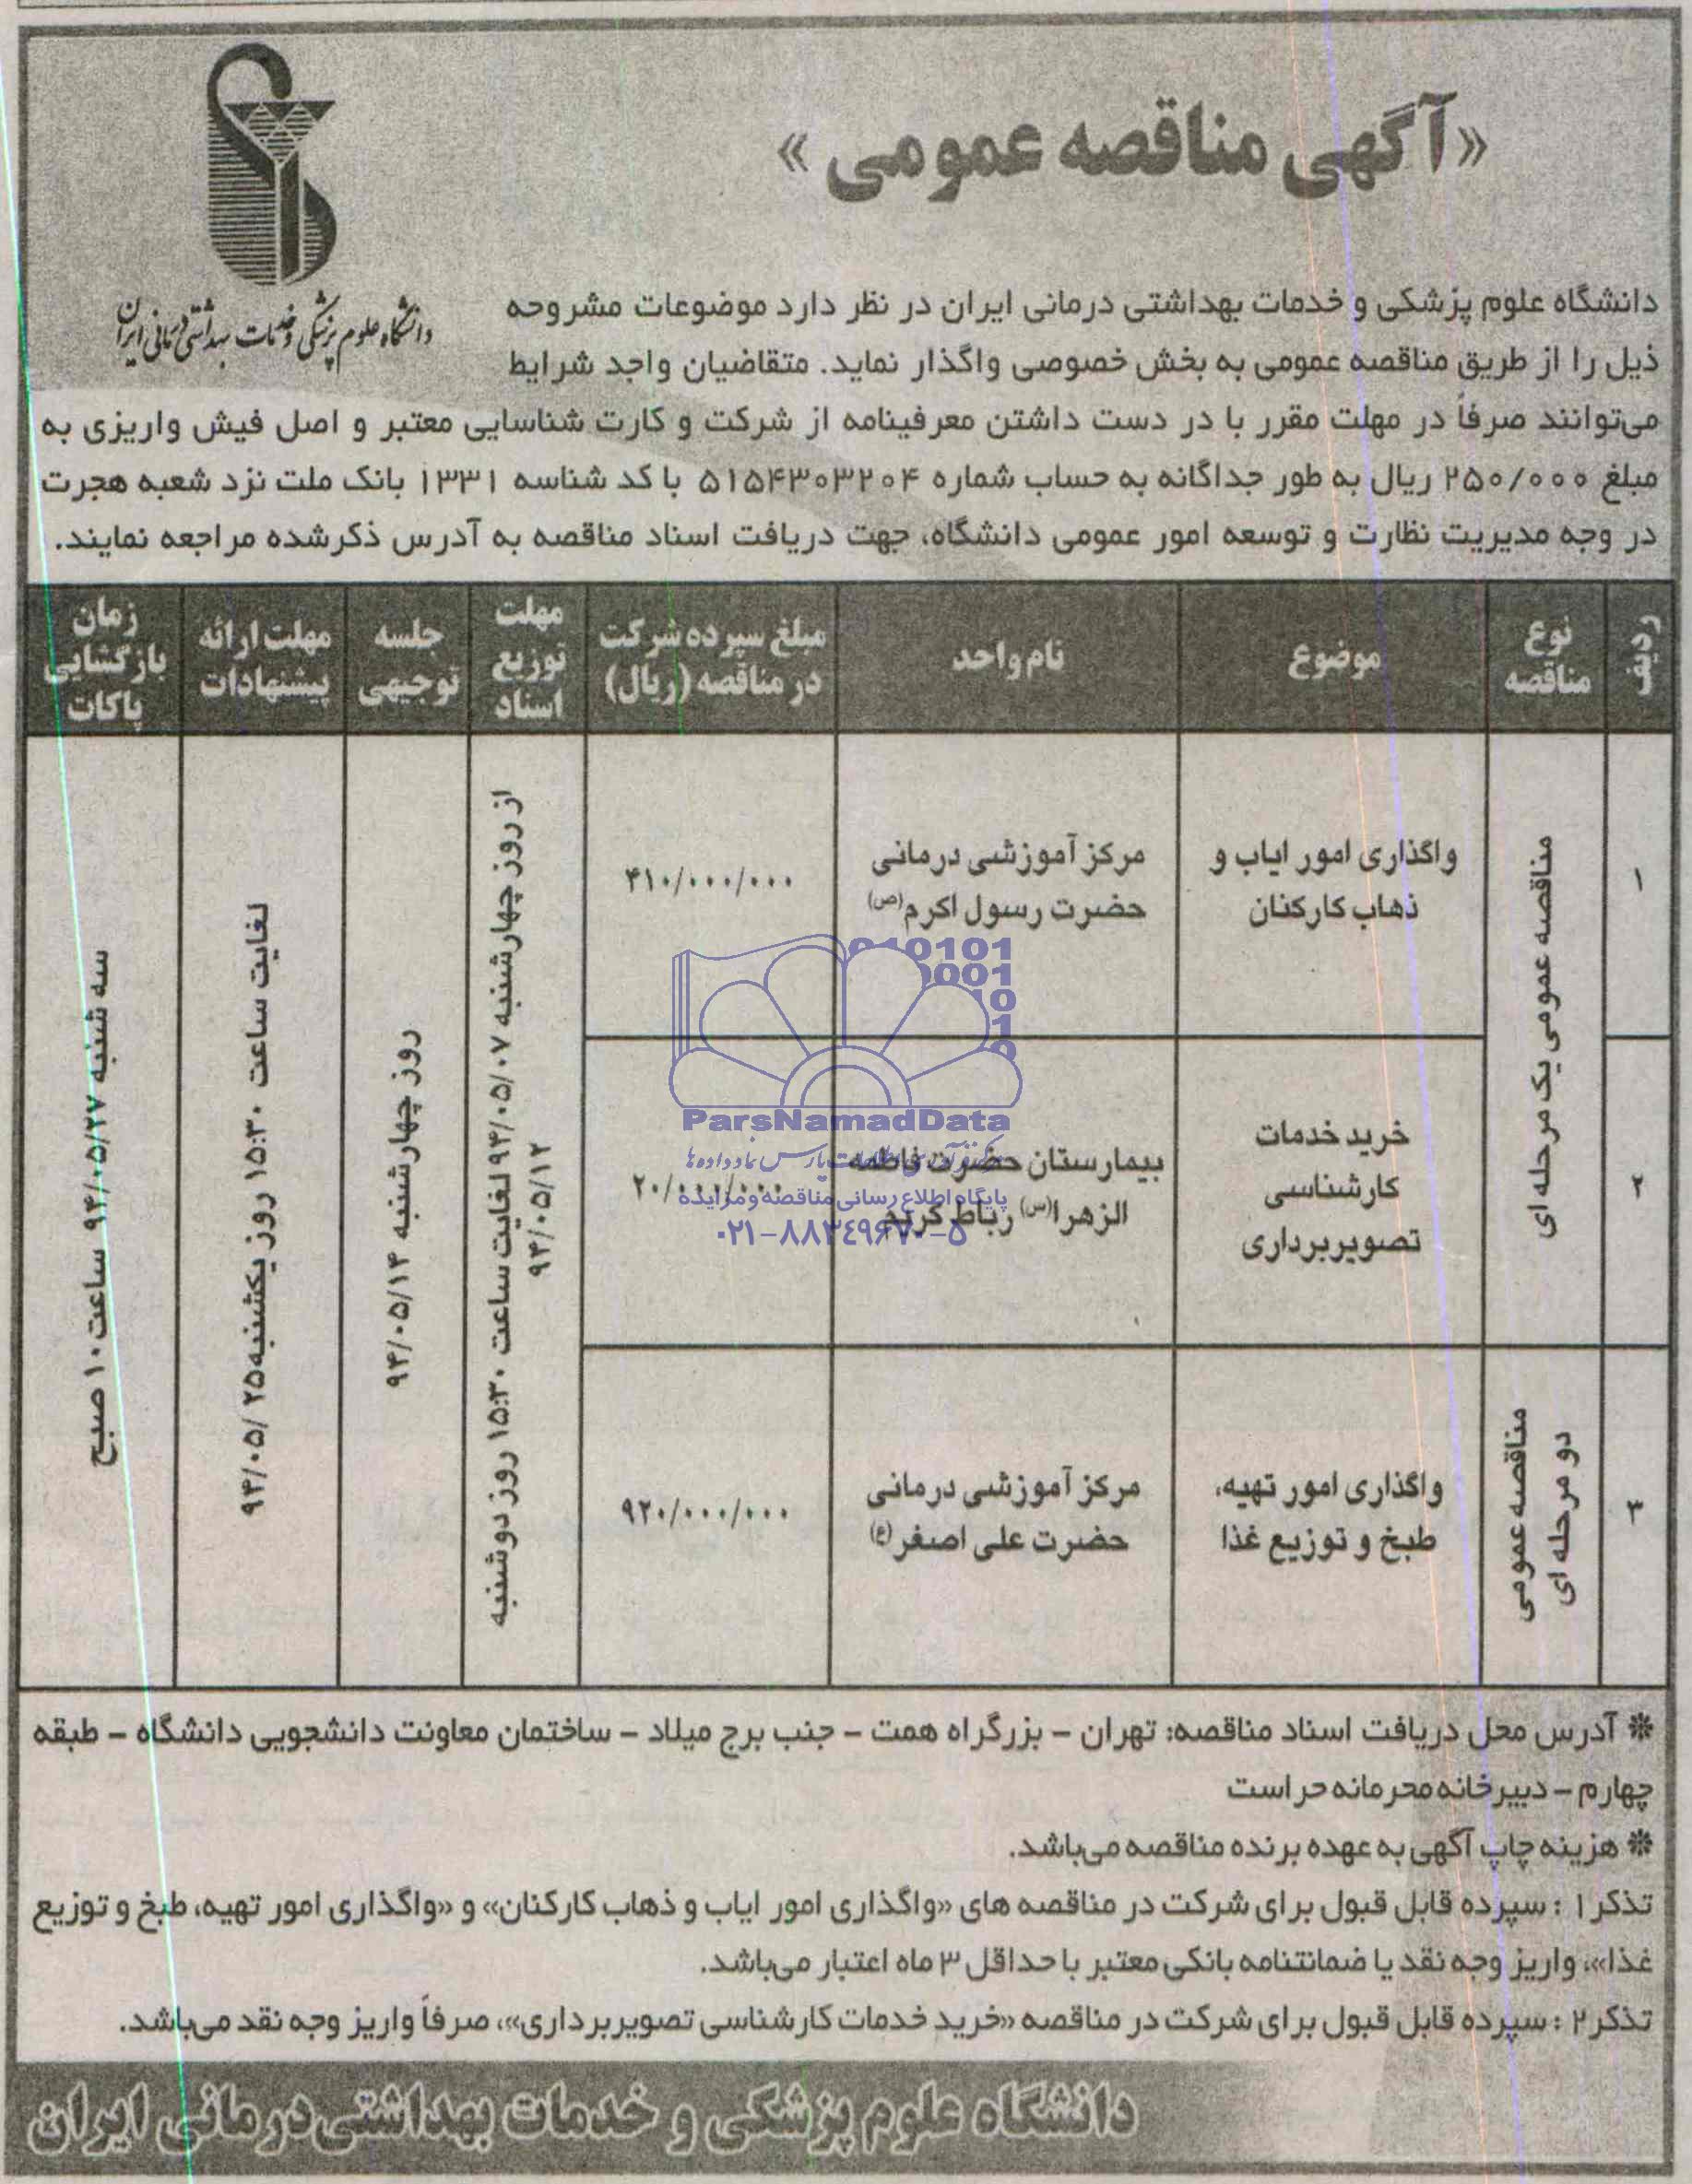 «آگهی مناقصه عمومی»
دانشگاه علوم پزشکی و خدمات بهداشتی درمانی ایران
دانشگاه علوم پزشکی و خدمات بهداشتی درمانی ایران در نظر دارد موضوعات مشروحه
ذیل را از طریق مناقصه عمومی به بخش خصوصی واگذار نماید. متقاضیان واجد شرایط
می‌توانند صرفاً در مهلت مقرر با در دست داشتن معرفینامه از شرکت و کارت شناسایی معتبر و اصل فیش واریزی به
مبلغ ۲۵۰/۰۰۰ ریال به طور جداگانه به حساب شماره ۵۱۵۴۳۰۳۲۰۴ با کد شناسه ۱۳۳۱ بانک ملت نزد شعبه هجرت
در وجه مدیریت نظارت و توسعه امور عمومی دانشگاه، جهت دریافت اسناد مناقصه به آدرس ذکرشده مراجعه نمایند.
ردیف
نوع
مناقصه
موضوع
نام واحد
مبلغ سپرده شرکت
در مناقصه (ریال)
مهلت
توزیع
اسناد
جلسه
توجیهی
مهلت ارائه
پیشنهادات
زمان
بازگشایی
پاکات
۱
مناقصه عمومی یک مرحله ای
واگذاری امور ایاب و
ذهاب کارکنان
مرکز آموزشی درمانی
حضرت رسول اکرم (ص)
۴۱۰/۰۰۰/۰۰۰
از روز چهارشنبه ۹۴/۰۵/۰۷ لغایت ساعت ۱۵:۳۰ روز دوشنبه
۹۴/۰۵/۱۲
روز چهارشنبه ۹۴/۰۵/۱۴
لغایت ساعت ۱۵:۳۰ روز یکشنبه ۹۴/۰۵/۲۵
سه شنبه ۹۴/۰۵/۲۷ ساعت ۱۰ صبح
۲
خرید خدمات
کارشناسی
تصویربرداری
بیمارستان حضرت فاطمه
الزهرا (س) رباط کریم
۲۰/۰۰۰/۰۰۰
۳
مناقصه عمومی
دو مرحله ای
واگذاری امور تهیه،
طبخ و توزیع غذا
مرکز آموزشی درمانی
حضرت علی اصغر (ع)
۹۲۰/۰۰۰/۰۰۰
ParsNamadData
پایگاه اطلاع رسانی مناقصه و مزایده
۰۲۱-۸۸۳۴۹۶۷۰-۵
❊ آدرس محل دریافت اسناد مناقصه: تهران – بزرگراه همت – جنب برج میلاد – ساختمان معاونت دانشجویی دانشگاه – طبقه
چهارم – دبیرخانه محرمانه حراست
❊ هزینه چاپ آگهی به عهده برنده مناقصه می‌باشد.
تذکر ۱ : سپرده قابل قبول برای شرکت در مناقصه های «واگذاری امور ایاب و ذهاب کارکنان» و «واگذاری امور تهیه، طبخ و توزیع
غذا»، واریز وجه نقد یا ضمانتنامه بانکی معتبر با حداقل ۳ ماه اعتبار می‌باشد.
تذکر ۲ : سپرده قابل قبول برای شرکت در مناقصه «خرید خدمات کارشناسی تصویربرداری»، صرفاً واریز وجه نقد می‌باشد.
دانشگاه علوم پزشکی و خدمات بهداشتی درمانی ایران